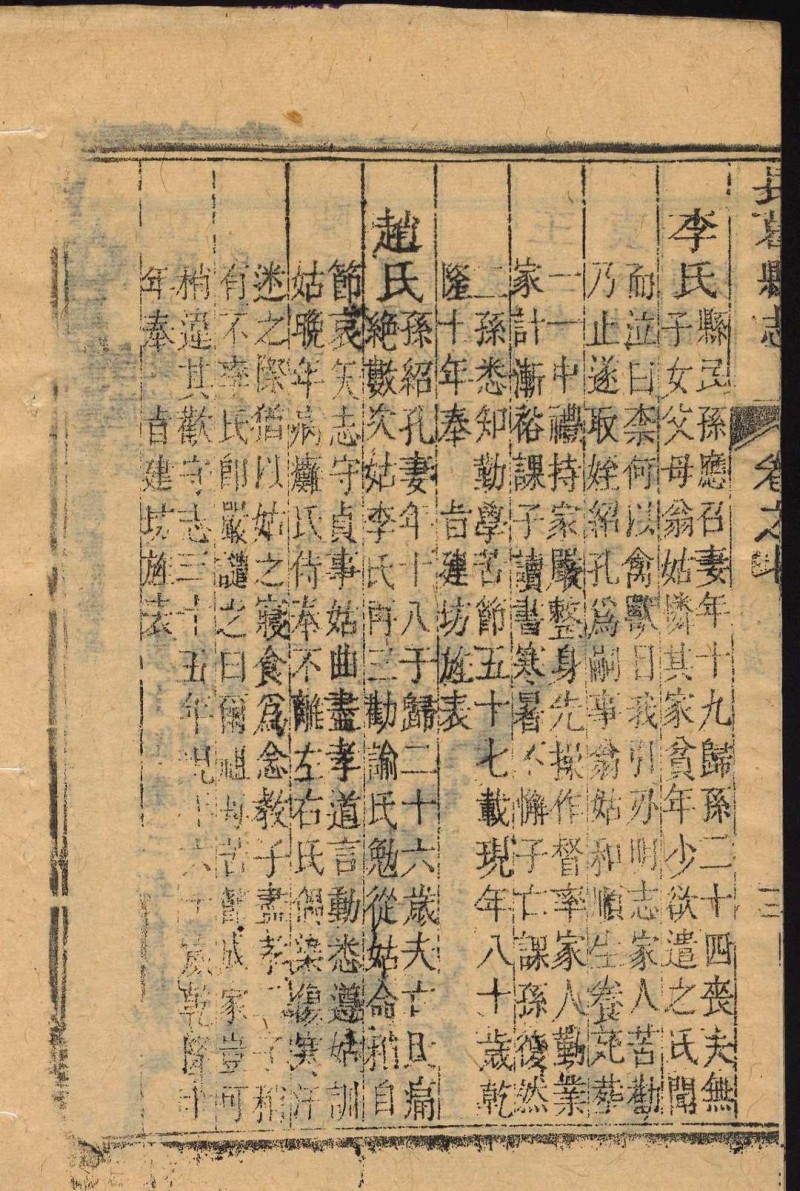 長葛縣志 卷之 三
李氏縣民孫應召妻年十九歸孫二十四喪夫無
子女父母翁姑憐其家貧年少欲遣之氏聞
而泣曰柰何以禽獸目我引刃明志家人苦勸
乃止遂取姪紹孔爲嗣事翁姑和順生養死葬
一一中禮持家嚴整身先操作督率家人勤業
家計漸裕課子讀書寒暑不懈子亡課孫復然
二孫悉知勤學苦節五十七載現年八十歲乾
隆十年奉 旨建坊旌表
趙氏孫紹孔妻年十八于歸二十六歲夫亡氏痛
絶數次姑李氏再三勸諭氏勉從姑命稍自
節哀矢志守貞事姑曲盡孝道言動悉遵姑訓
姑晚年病癱氏侍奉不離左右氏偶染傷寒汗
迷之際猶以姑之寢食爲念教子盡孝 子稍
有不率氏即嚴譴之曰爾祖母苦 成家豈可
稍違其歡守志三十五年現 六十 歲乾隆十
年奉 旨建坊旌表